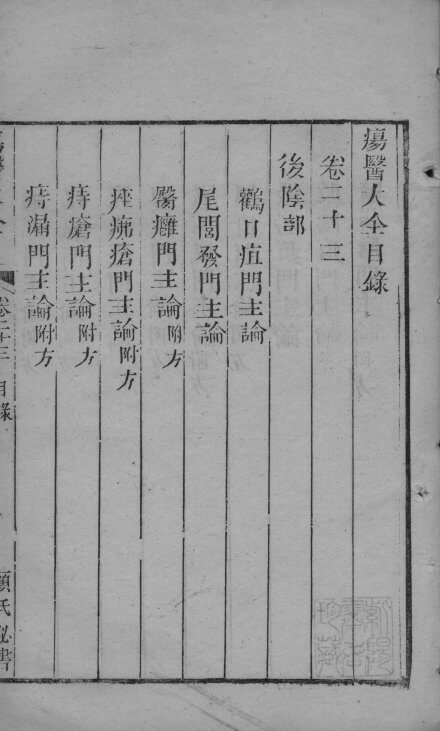 瘍醫大全目錄
卷二十三
後陰部
鸛口疽門主論
尾閭發門主論
臀癰門主論附方
痤疿瘡門主論附方
痔瘡門主論附方
痔漏門主論附方
卷二十三 目錄
顧氏秘書